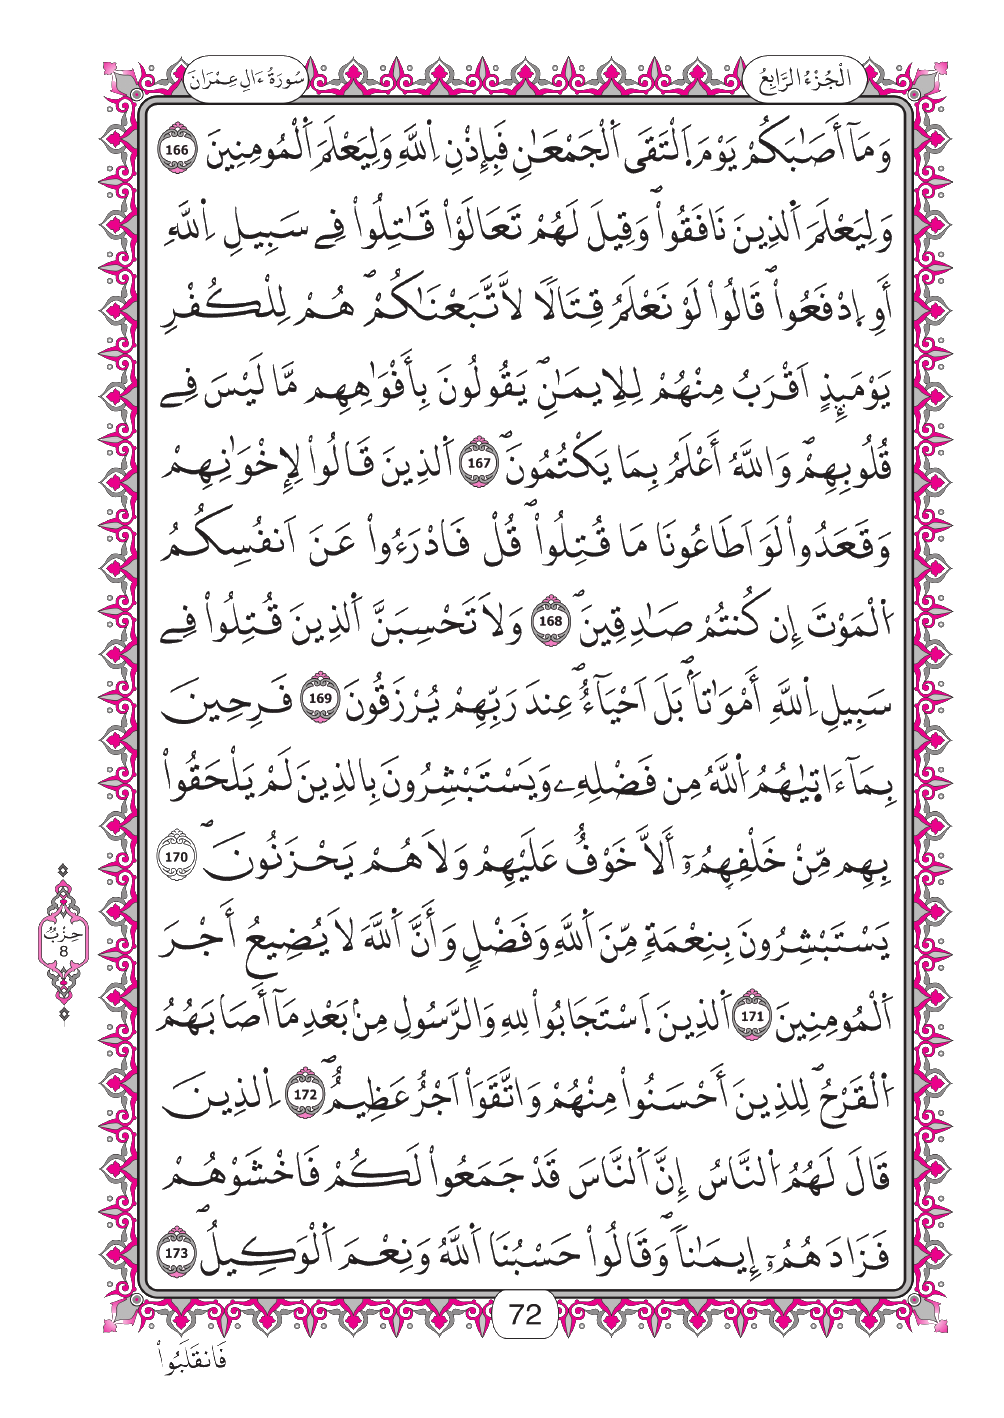 سُورَةُ ءَالِ عِمْرَانَ
الْجُزْءُ الرَّابِعُ
وَمَآ أَصَٰبَكُمْ يَوْمَ اَ۬لْتَقَى اَ۬لْجَمْعَٰنِ فَبِإِذْنِ اِ۬للَّهِ وَلِيَعْلَمَ اَ۬لْمُومِنِينَ 166
وَلِيَعْلَمَ اَ۬لذِينَ نَافَقُواْۖ وَقِيلَ لَهُمْ تَعَالَوْاْ قَٰتِلُواْ فِے سَبِيلِ اِ۬للَّهِ
أَوِ اِ۪دْفَعُواْۖ قَالُواْ لَوْ نَعْلَمُ قِتَالًا لَّاتَّبَعْنَٰكُمْۖ هُمْ لِلْكُفْرِ
يَوْمَئِذٍ اَقْرَبُ مِنْهُمْ لِلِايمَٰنِۖ يَقُولُونَ بِأَفْوَٰهِهِم مَّا لَيْسَ فِے
قُلُوبِهِمْۖ وَاللَّهُ أَعْلَمُ بِمَا يَكْتُمُونَۖ 167 اَ۬لذِينَ قَالُواْ لِإِخْوَٰنِهِمْ
وَقَعَدُواْ لَوَ اَطَاعُونَا مَا قُتِلُواْۖ قُلْ فَادْرَءُواْ عَنَ اَنفُسِكُمُ
اُ۬لْمَوْتَ إِن كُنتُمْ صَٰدِقِينَۖ 168 وَلَا تَحْسِبَنَّ اَ۬لذِينَ قُتِلُواْ فِے
سَبِيلِ اِ۬للَّهِ أَمْوَٰتاَۢۖ بَلَ اَحْيَآءٌۖ عِندَ رَبِّهِمْ يُرْزَقُونَ 169 فَرِحِينَ
بِمَآ ءَات۪يٰهُمُ اُ۬للَّهُ مِن فَضْلِهِۦ وَيَسْتَبْشِرُونَ بِالذِينَ لَمْ يَلْحَقُواْ
بِهِم مِّنْ خَلْفِهِمُۥٓ أَلَّا خَوْفٌ عَلَيْهِمْ وَلَا هُمْ يَحْزَنُونَۖ 170
يَسْتَبْشِرُونَ بِنِعْمَةٖ مِّنَ اَ۬للَّهِ وَفَضْلٖ وَأَنَّ اَ۬للَّهَ لَا يُضِيعُ أَجْرَ
اَ۬لْمُومِنِينَ 171 اَ۬لذِينَ اَ۪سْتَجَابُواْ لِلهِ وَالرَّسُولِ مِنۢ بَعْدِ مَآ أَصَابَهُمُ
اُ۬لْقَرْحُۖ لِلذِينَ أَحْسَنُواْ مِنْهُمْ وَاتَّقَوَاْ اَجْرٌ عَظِيمٌۖ 172 اِ۬لذِينَ
قَالَ لَهُمُ اُ۬لنَّاسُ إِنَّ اَ۬لنَّاسَ قَدْ جَمَعُواْ لَكُمْ فَاخْشَوْهُمْ
فَزَادَهُمُۥٓ إِيمَٰناٗۖ وَقَالُواْ حَسْبُنَا اَ۬للَّهُ وَنِعْمَ اَ۬لْوَكِيلُۖ 173
حِزْبٌ
8
72
فَانقَلَبُواْ